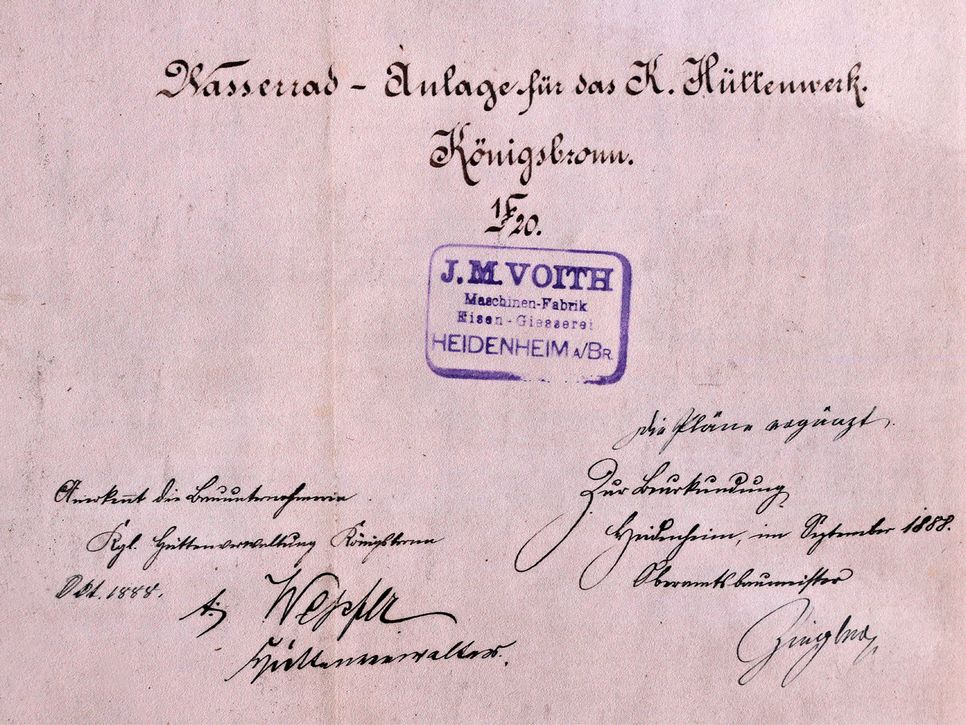 Wasserrad - Anlage für das K. Hüttenwerk.
Königsbronn.
1/20.
J. M. VOITH
Maschinen-Fabrik
Eisen-Giesserei
HEIDENHEIM A/BR.
die Pläne ergänzt.
Zur Beurkundung
Heidenheim, im September 1888.
Oberamtsbaumeister
Anerkennt die Bauunternehmerin
Kgl. Hüttenverwaltung Königsbronn
Okt. 1888.
Hüttenverwalter.